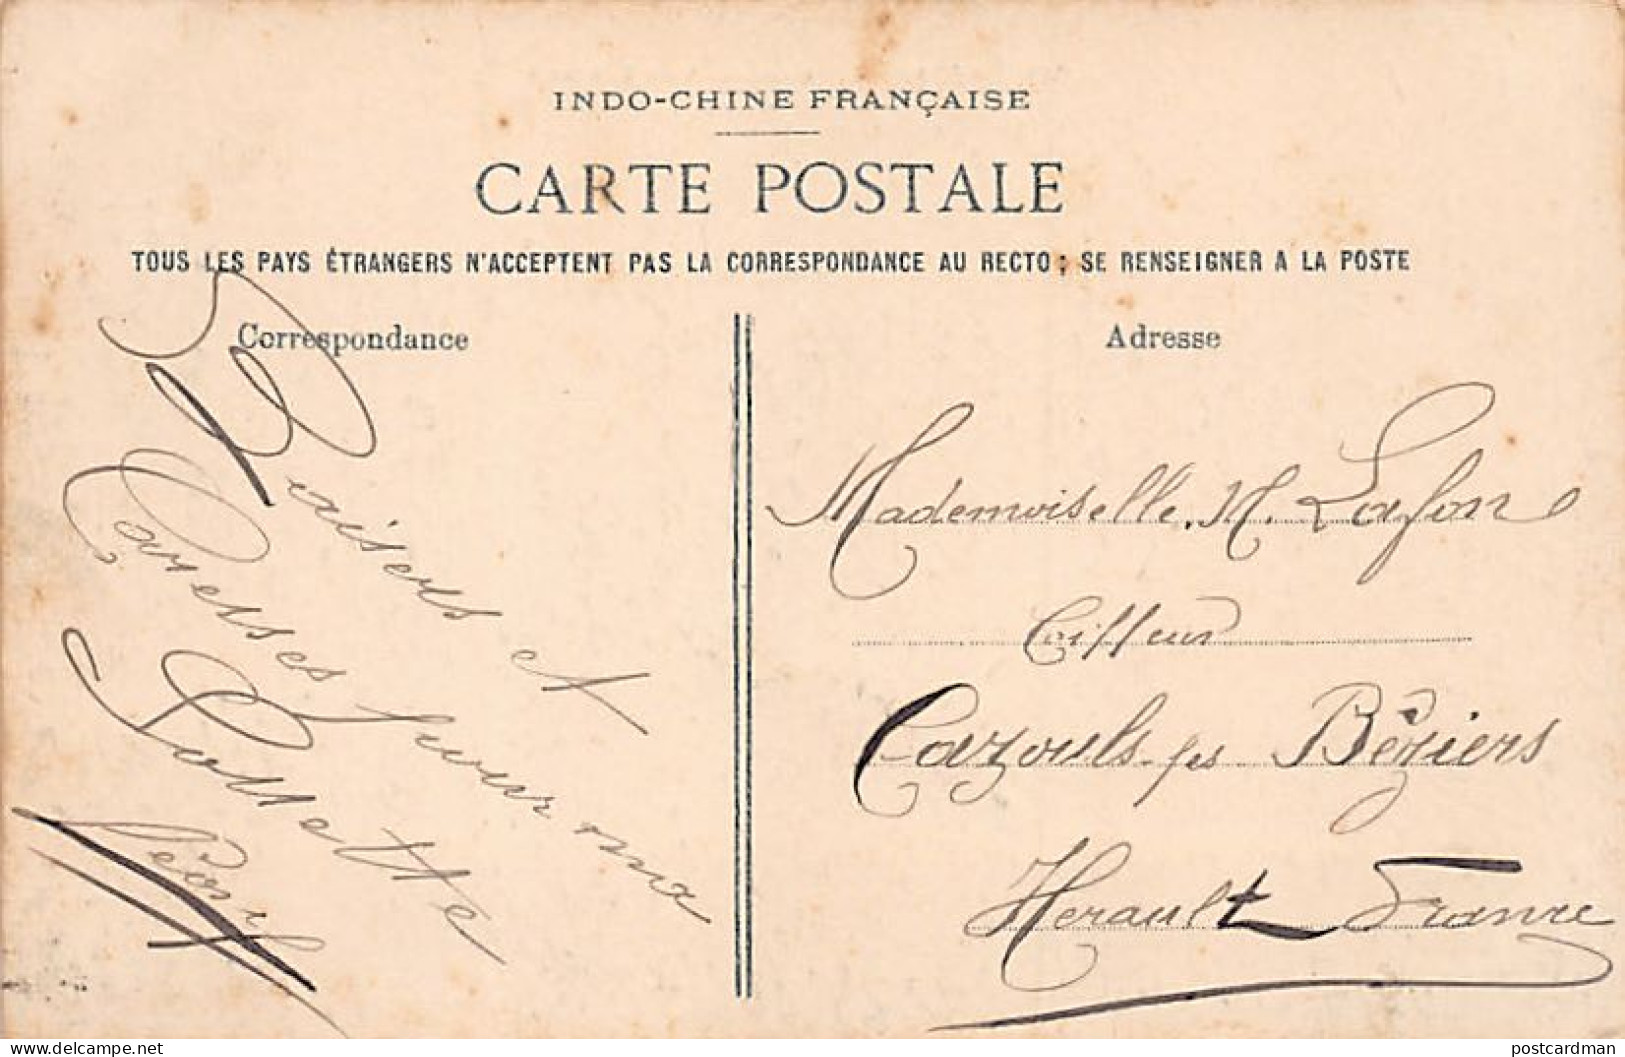 INDO-CHINE FRANÇAISE
CARTE POSTALE
TOUS LES PAYS ÉTRANGERS N'ACCEPTENT PAS LA CORRESPONDANCE AU RECTO; SE RENSEIGNER A LA POSTE
Correspondance
Baisers et
Caresses pour ma
Lucette
Adresse
Mademoiselle M. Lafon
Coiffeur
Cazouls-les Béziers
Herault France
postcardman
www.delcampe.net